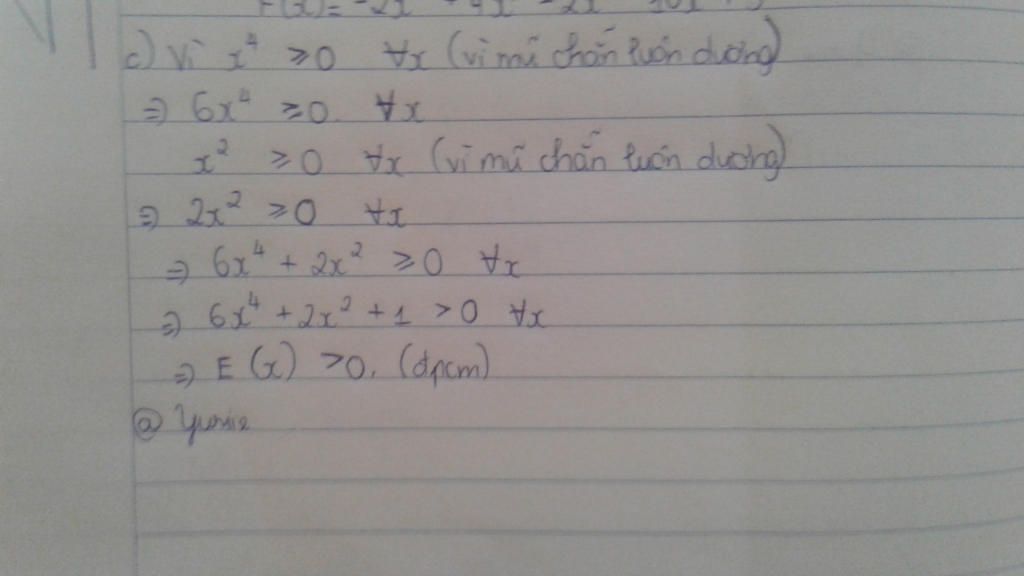 c) Vì x⁴ ≥ 0 ∀x (vì mũ chẵn luôn dương)
⇒ 6x⁴ ≥ 0 ∀x
x² ≥ 0 ∀x (vì mũ chẵn luôn dương)
⇒ 2x² ≥ 0 ∀x
⇒ 6x⁴ + 2x² ≥ 0 ∀x
⇒ 6x⁴ + 2x² + 1 > 0 ∀x
⇒ E(x) > 0. (đpcm)